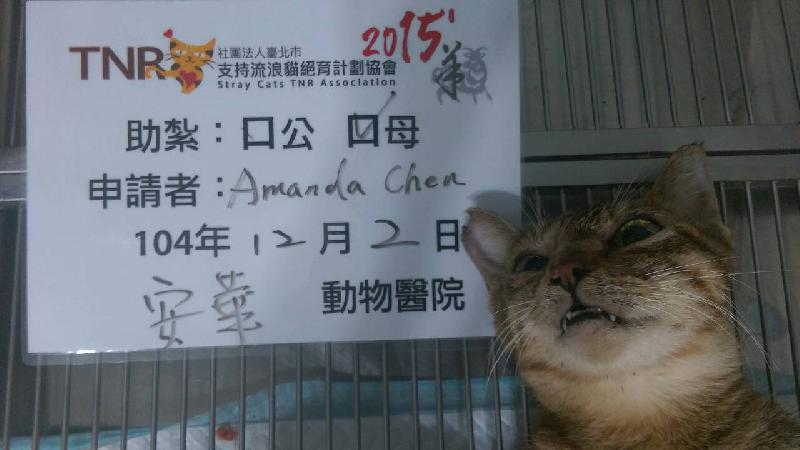 TNR 社團法人臺北市 2015'
支持流浪貓絕育計劃協會 羊
Stray Cats TNR Association
助紮：口公 口母
申請者：Amanda Chen
104年 12 月 2 日
安華 動物醫院